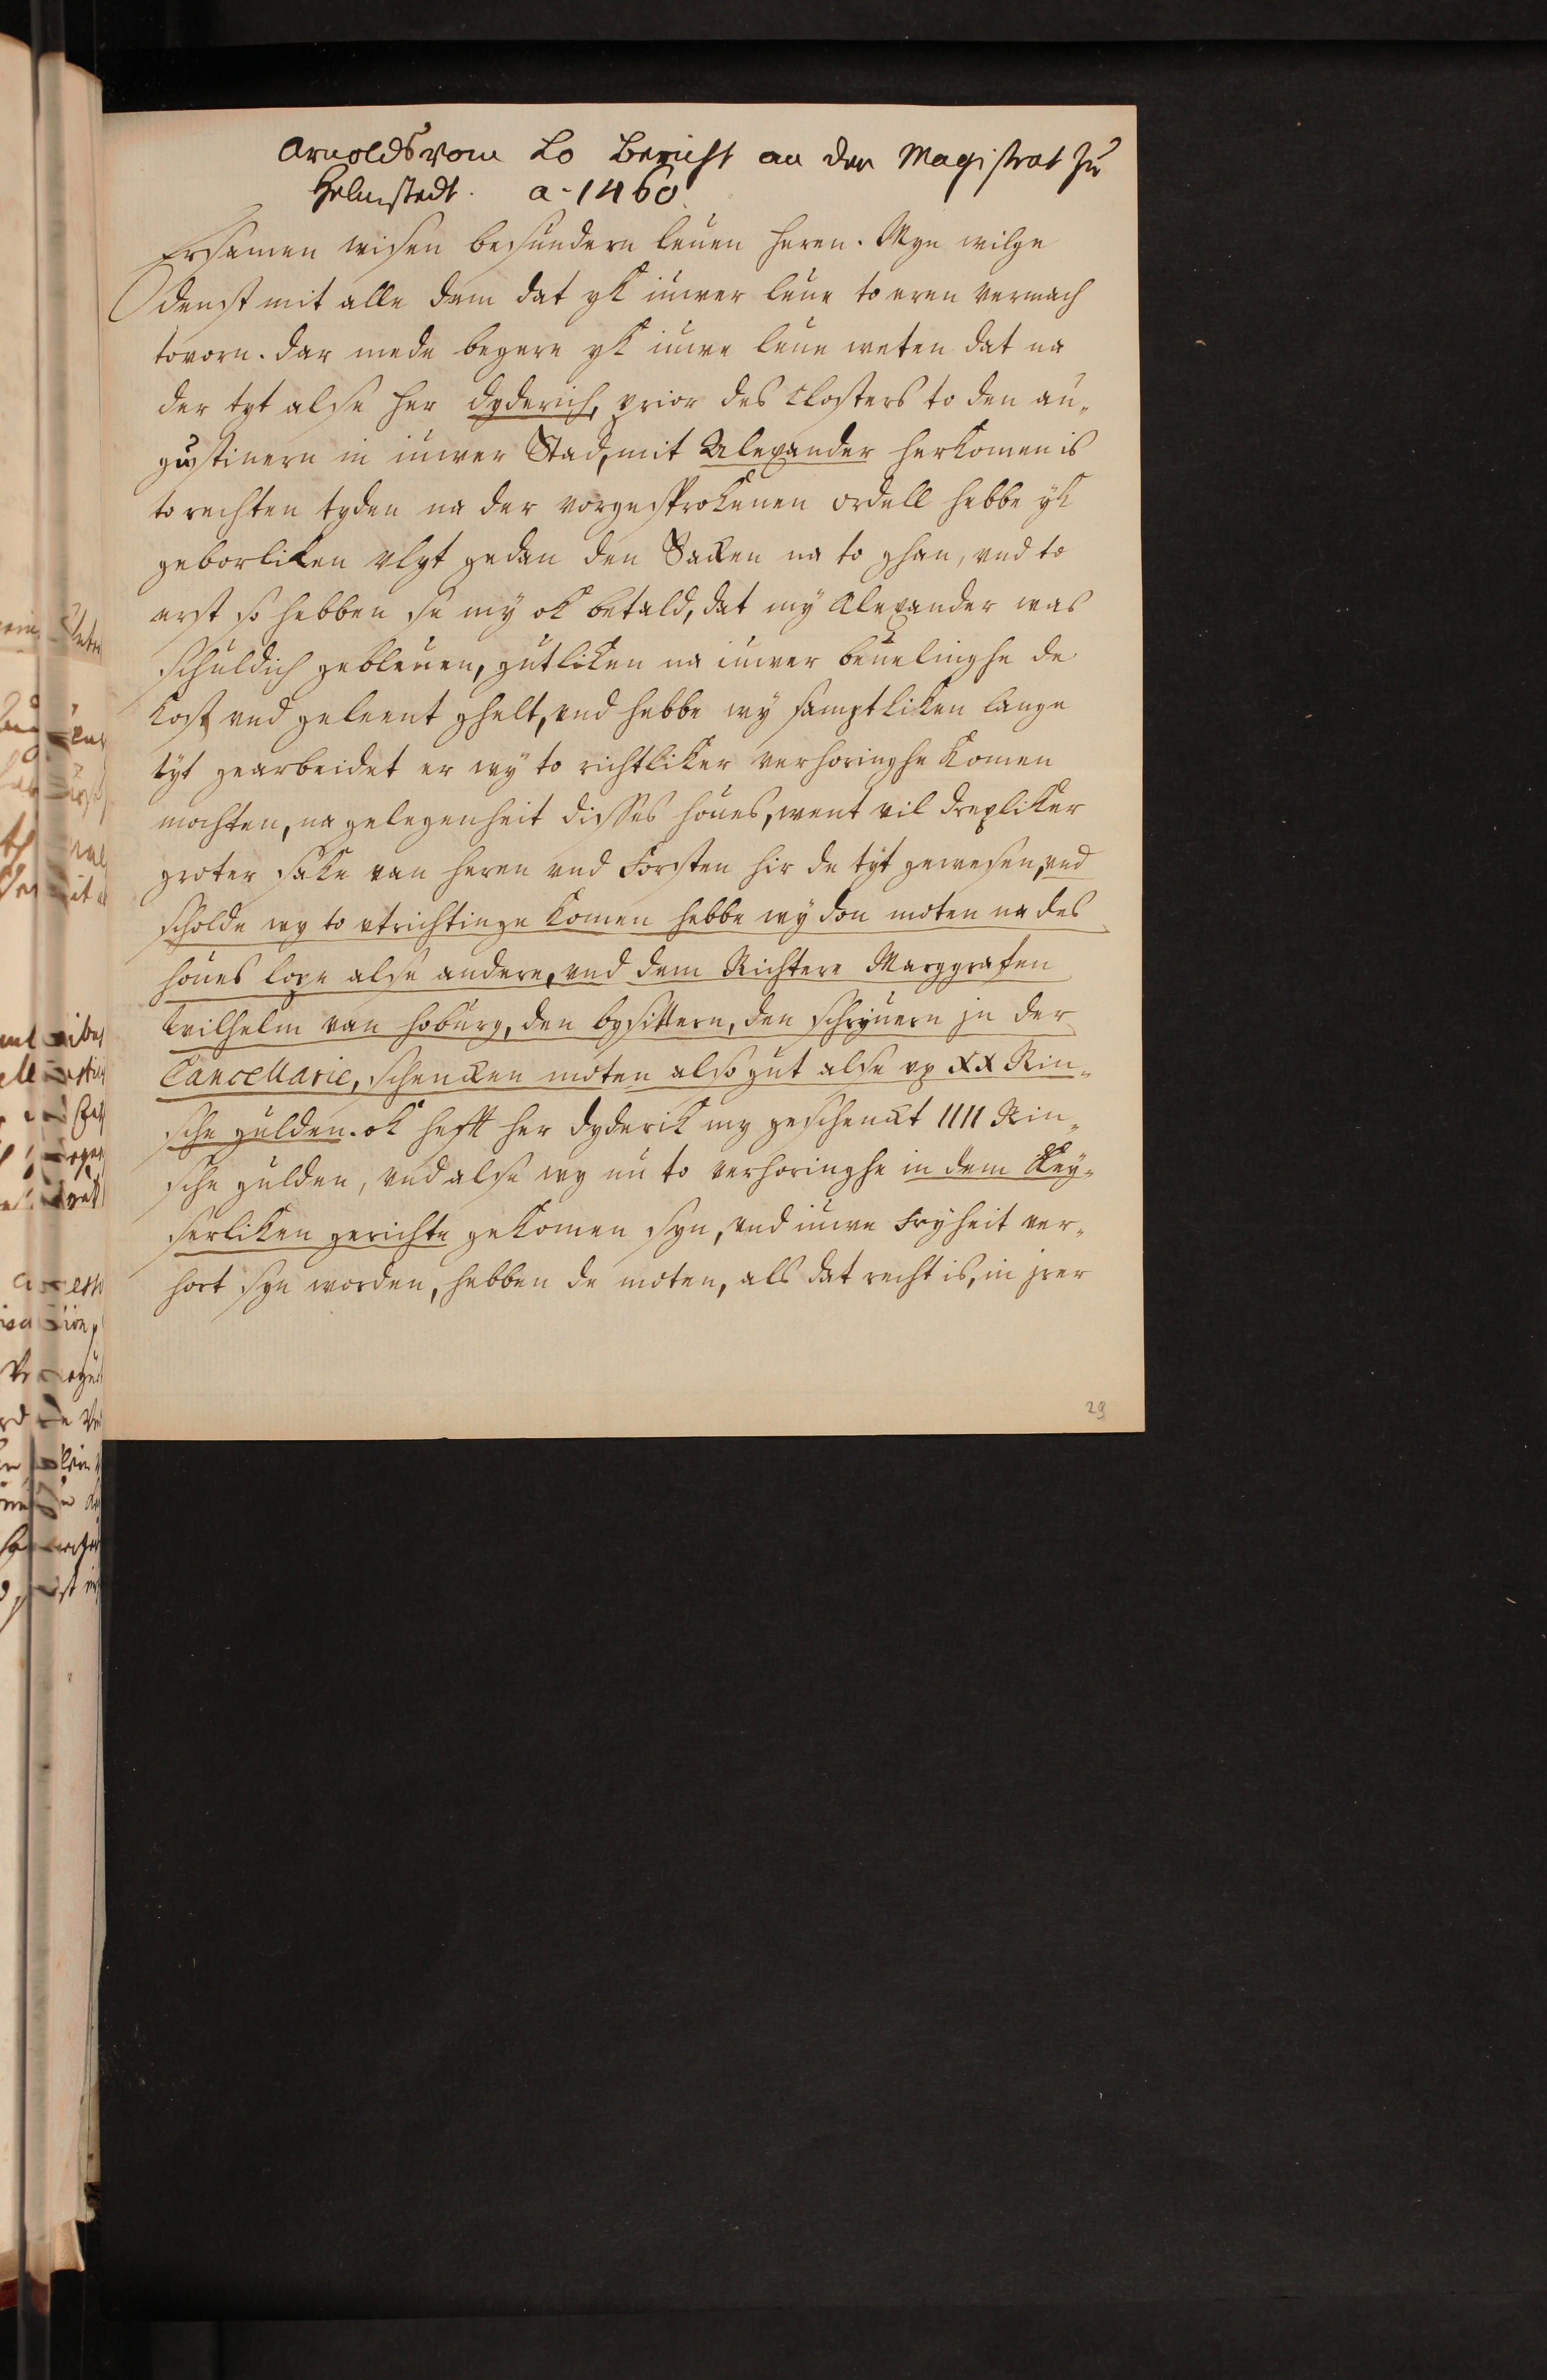 Arnolds vom Lo Bericht an den Magistrat zu
Helmstedt. a. 1460.
Ersamen wisen besundern leuen heren. Myn wilge
denst mit alle dem dat yk iuwer leue to eren vermach
tovorn. dar mede begere yk iuwe leue weten dat na
der tyt alse her dyderich, prior des closters to den au-
gustinern in iuwer Stad, mit Alexander herkomen is
to rechten tyden na der vorgesprokenen ordell hebbe yk
geborliken vlyt gedan den Saken na to ghan, vnd to
erst so hebben se my ok betald, dat my Alexander was
schuldich gebleuen, gutliken na iuwer beuelinghe de
kost vnd geleent ghelt, vnd hebbe wy samptliken lange
tyt gearbeidet er wy to richtliker verhoringhe komen
mochten, na gelegenheit disses houes, went vil drepliker
groter sake van heren vnd Forsten hir de tyt gewesen, vnd
scholde wy to vtrichtinge komen hebbe wy don moten na des
houes lope alse andere, vnd dem Richtere Marggrafen
Wilhelm van hoburg, den bysittern, den schryuern in der
Cancellarie, schencken moten also gut alse vp XX Rin-
sche gulden. ok hefft her dyderik my geschenckt IIII Rin-
sche gulden, vnd alse wy nu to verhoringhe in dem Key-
serliken gerichte gekomen syn, vnd iuwe Fryheit ver-
hort syn worden, hebben de moten, als dat recht is, in jrer
29